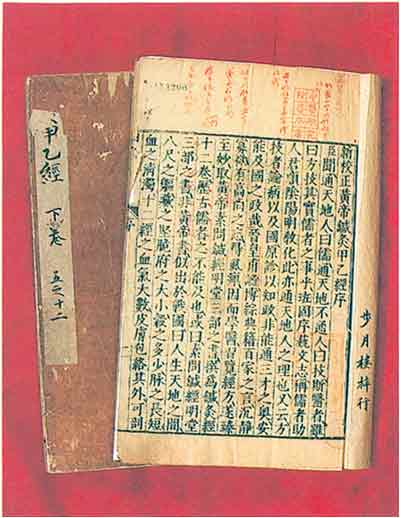 新校正黃帝鍼灸甲乙經序
臣聞通天地人曰儒通天地不通人曰技斯醫者雖
曰方技其實儒者之事乎班固序藝文志稱儒者助
人君順陰陽明教化此亦通天地人之理也又云方
技者論病以及國原診以知政非能通三才之奥安
能及國之政哉晉皇甫謐博綜典籍百家之言沉靜
寡欲有高尚之志得風痹因而學醫習覽經方遂臻
至妙取黃帝素問鍼經明堂三部之書撰爲鍼灸經
十二卷歷古儒者之不能及也或曰素問鍼經明堂
三部之書非黃帝書似出於戰國曰人生天地之間
八尺之軀藏之堅脆府之大小穀之多少脉之長短
血之清濁十二經之血氣大數皮膚包絡其外可剖
步月樓梓行
甲乙經 下卷 五之十二